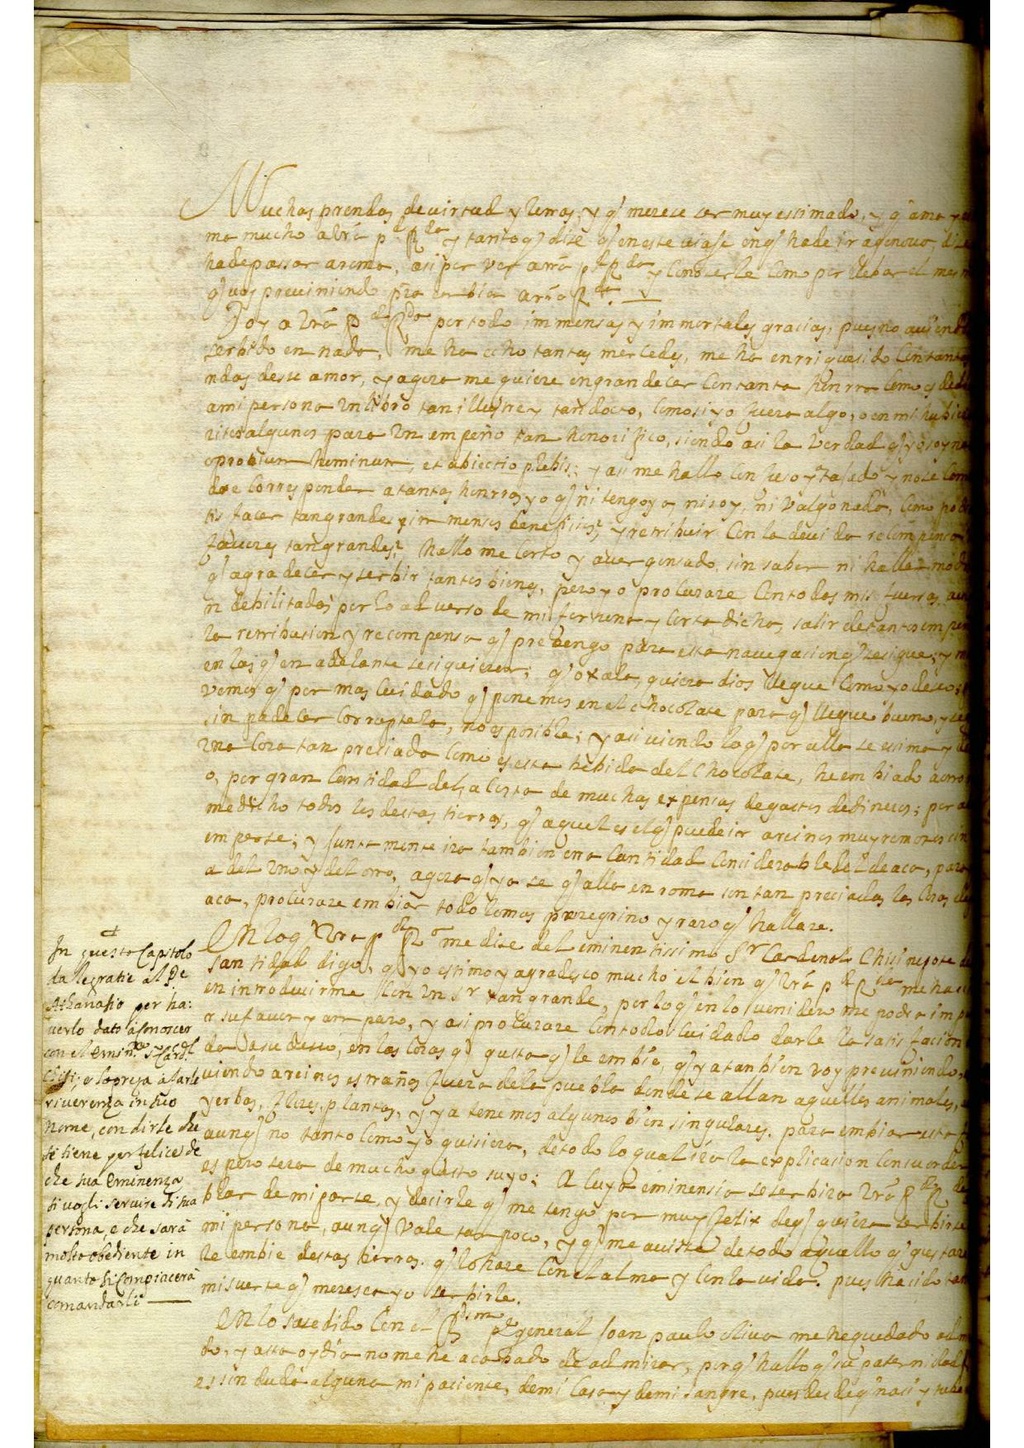 Muchas prendas de virtud y letras, y q̃ merese ser muy estimado, y q̃ ama y
ma mucho a Vrã pd Rda y tanto q̃ dise q̃ en este viaje en q̃ ha de ir a genova, dise
ha de passar a roma, asi por ver a vrã pd Rda y conoserle como por deber el mes
q̃ voy previniendo pra embiar a vrã Rda.
Doy a Vrã Pd Rda por todo immensas y immortales gracias, pues no
serbido en nada, me ha echo tantas mercedes, me ha enrriquesido con tanta
ndas deste amor, y agora me quiere engrandecer con tanta honrra como es
a mi persona un libro tan illustre y tan docto, como si yo fuera algo, o en mi hubie
ritos algunos para un empeño tan honorifico, siendo asi la verdad q̃ yo soy
oprobium hominum, et abiectio plebis; y asi me hallo y no se com
do e corresponder a tantas honrras yo q̃ ni tengo yo ni soy, ni valgo nada, como pod
tisfacer tan grandes immensos beneficios, y retribuir con la devida recompensa
favores tan grandes? hallo me corto y avergonsado, sin saber ni hallar modo
q̃ agradecer y serbir tantos bienes, pero yo procurare con todas mis fuerzas, aun
n debilitadas por lo adverso de mi fortuna y corta dicha, salir de tanto empe
la retribusion y recompensa q̃ prebengo para esta navegasion q̃ se sigue, y
en las q̃ en adelante se siguieren; q̃ oxala, quiera dios llegue como yo deseo;
vemos q̃ por mas cuidado q̃ ponemos en el chocolate para q̃ llegue bueno, y
sin padecer corruptela, no es posible; y asi viendo lo q̃ por alla se estima y
una cosa tan presiada como es esta bebida del chocolate, he embiado
o, por gran cantidad del a costa de muchas expensas de gastos de dineros; por
me dicho todos los destas tierras, q̃ aquel es el q̃ puede ir a reinos muy remotos sin
emperse; y juntamente ira tambien otra cantidad considerable del de aca, para
a del uno y del otro, agora q̃ ya se q̃ alla en roma son tan preciadas las cosas de
aca, procurare embiar todo lo mas peregrino y raro q̃ hallare.
En lo q̃ Vrã pd Ra me dise del eminentissimo Sr Cardenal Chisi nepote de
santidad digo, q̃ yo estimo y agradesco mucho el bien q̃ Vrã pd Rda me hace
en introducirme con un Sr tan grande, por lo q̃ en lo venidero me podra
r su favor y amparo, y asi procurare con todo cuidado darle la satisfacion
da a su deseo, en las cosas q̃ gusta q̃ le embie, q̃ ya tambien voy previniendo,
viendo a reinos estraños fuera de la puebla donde se allan aquellos animales,
yerbas, flores, plantas, y ya tenemos algunos bien singulares, para embiar esta
aunq̃ no tanto como yo quisiera, de todo lo qual ira la explicasion con su orden
espero sera de mucho gusto suyo: A cuya eminensia se serbira Vrã Pd Rda
blar de mi parte, y decirle q̃ me tengo por muy felix de q̃ quiera serbirse
mi persona, aunq̃ vale tan poco, y q̃ me avise de todo aquello q̃ gustare
le embie destas tierras, q̃ lo hare con el alma y con la vida, pues ha sido tan
mi suerte q̃ meresca yo serbirle.
En lo susedido con el Rdmo Pe general Joan paulo oliva me he quedado adm
do, y asta oy dia no me he acabado de admirar, porq̃ hallo q̃ su paternidad
es sin duda alguna mi pariente, de mi casa y de mi sangre, pues desde q̃ nasi y tube
In questo Capitolo
da le gratie al Pe
Athanasio per ha:
uerlo dato à conoscer
con el Emin.mo Sr Card.l
Chisi; e lo prega à farle
riuerenza in suo
nome, con dirle che
si tiene per felice de
che sua Eminenza
si vogli seruire di sua
persona, e che sarà
molto obediente in
quanto si compiacerà
comandarli